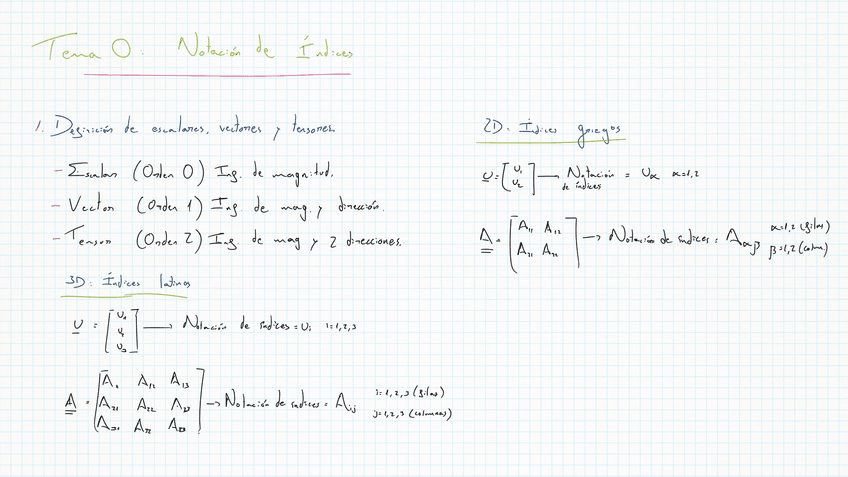 Tema 0: Notación de Índices
1. Definición de escalares, vectores y tensores.
- Escalar (Orden 0) Inf. de magnitud.
- Vector (Orden 1) Inf. de mag. y dirección.
- Tensor (Orden 2) Inf. de mag y 2 direcciones.
3D: Índices latinos
U = [U₁ U₂ U₃] → Notación de índices = Uᵢ i=1,2,3
A = [A₁₁ A₁₂ A₁₃
A₂₁ A₂₂ A₂₃
A₃₁ A₃₂ A₃₃] → Notación de índices = Aᵢⱼ i=1,2,3 (filas)
j=1,2,3 (columnas)
2D: Índices griegos
U = [U₁ U₂] → Notación de índices = Uα α=1,2
A = [A₁₁ A₁₂
A₂₁ A₂₂] → Notación de índices = Aαβ α=1,2 (filas)
β=1,2 (colum)